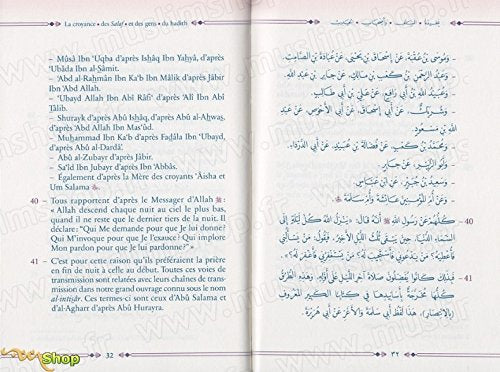 La croyance • des Salaf • et des gens • du hadith
– Mûsâ Ibn 'Uqba d'après Isḥâq Ibn Yaḥyâ, d'après
'Ubâda Ibn al-Ṣâmit.
– 'Abd al-Raḥmân Ibn Ka'b Ibn Mâlik d'après Jâbir
Ibn 'Abd Allah.
– 'Ubayd Allah Ibn Abî Râfi' d'après 'Alî Ibn Abî
Ṭâlib.
– Shurayk d'après Abû Isḥâq, d'après Abû al-Aḥwaṣ,
d'après 'Abd Allah Ibn Mas'ûd.
– Muḥammad Ibn Ka'b d'après Faḍâla Ibn 'Ubayd,
d'après Abû al-Dardâ'.
– Abû al-Zubayr d'après Jâbir.
– Sa'îd Ibn Jubayr d'après Ibn 'Abbâs.
– Également d'après la Mère des croyants 'Âisha et
Um Salama
40 – Tous rapportent d'après le Messager d'Allah ﷺ :
« Allah descend chaque nuit au ciel le plus bas,
quand il ne reste que le dernier tiers de la nuit. Il
déclare : "Qui Me demande pour que Je lui donne?
Qui M'invoque pour que Je l'exauce? Qui implore
Mon pardon pour que Je lui pardonne?" »
41 – C'est pour cette raison qu'ils préféraient la prière
en fin de nuit à celle au début. Toutes ces voies de
transmission sont relatées avec leurs chaînes de trans-
mission dans notre grand ouvrage connu sous le nom
al-intiṣâr. Ces termes-ci sont ceux d'Abû Salama et
d'al-Agharr d'après Abû Hurayra.
32
– وَمُوسَى بْنُ عُقْبَةَ، عَنْ إِسْحَاقَ بْنِ يَحْيَى، عَنْ عُبَادَةَ بْنِ الصَّامِتِ.
– وَعَبْدُ الرَّحْمَنِ بْنُ كَعْبِ بْنِ مَالِكٍ، عَنْ جَابِرِ بْنِ عَبْدِ اللهِ.
– وَعُبَيْدُ اللهِ بْنُ أَبِي رَافِعٍ، عَنْ عَلِيِّ بْنِ أَبِي طَالِبٍ.
– وَشُرَيْكٌ، عَنْ أَبِي إِسْحَاقَ، عَنْ أَبِي الأَحْوَصِ، عَنْ عَبْدِ
اللهِ بْنِ مَسْعُودٍ.
– وَمُحَمَّدُ بْنُ كَعْبٍ، عَنْ فَضَالَةَ بْنِ عُبَيْدٍ، عَنْ أَبِي الدَّرْدَاءِ.
– وَأَبُو الزُّبَيْرِ، عَنْ جَابِرٍ.
– وَسَعِيدُ بْنُ جُبَيْرٍ، عَنْ ابْنِ عَبَّاسٍ.
– وَعَنْ أُمِّ الْمُؤْمِنِينَ عَائِشَةَ وَأُمِّ سَلَمَةَ
40 – كُلُّهُمْ عَنْ رَسُولِ اللهِ ﷺ أَنَّهُ قَالَ: «يَنْزِلُ اللهُ كُلَّ لَيْلَةٍ إِلَى
السَّمَاءِ الدُّنْيَا، حِينَ يَبْقَى ثُلُثُ اللَّيْلِ الأَخِيرُ، فَيَقُولُ: مَنْ يَسْأَلُنِي
فَأُعْطِيَهُ؟ مَنْ يَدْعُونِي فَأَسْتَجِيبَ لَهُ؟ مَنْ يَسْتَغْفِرُنِي فَأَغْفِرَ لَهُ؟»
41 – فَلِذَلِكَ كَانُوا يُفَضِّلُونَ صَلَاةَ آخِرِ اللَّيْلِ عَلَى أَوَّلِهِ. وَهَذِهِ الطُّرُقُ
كُلُّهَا مُخَرَّجَةٌ بِأَسَانِيدِهَا فِي كِتَابِنَا الكَبِيرِ المَعْرُوفِ
بِ(الانْتِصَارِ). هَذَا لَفْظُ أَبِي سَلَمَةَ وَالأَغَرِّ عَنْ أَبِي هُرَيْرَةَ.
٣٢
Shop